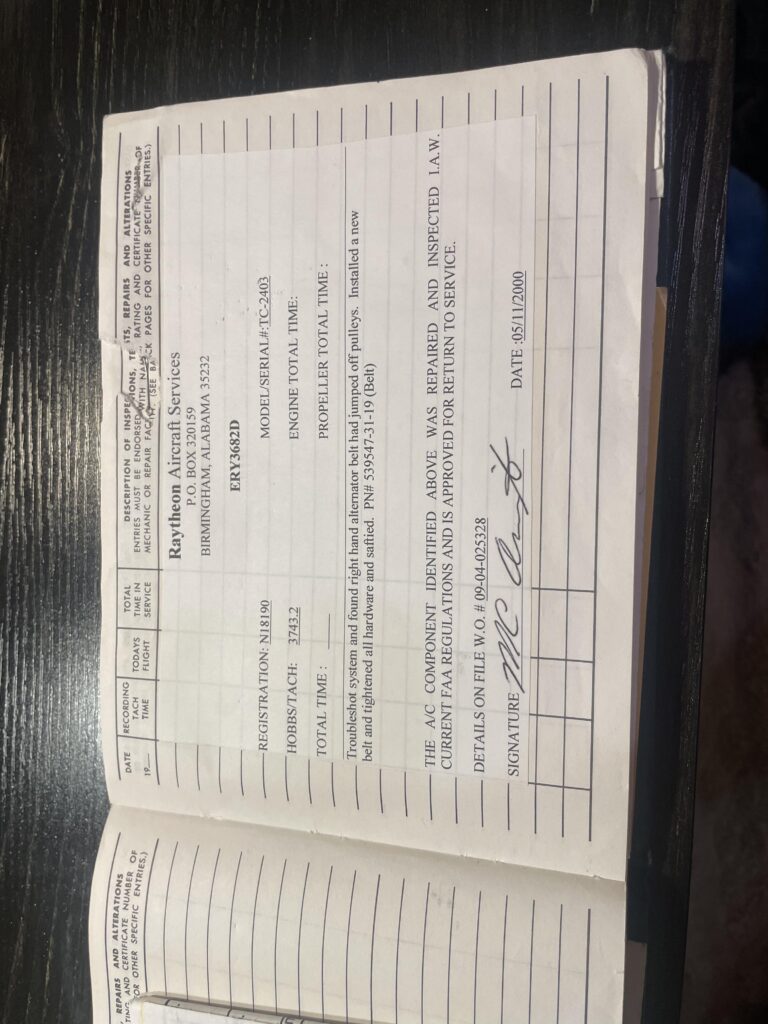 REPAIRS AND ALTERATIONS
AND CERTIFICATE NUMBER OF
OR OTHER SPECIFIC ENTRIES.)
DATE
19
RECORDING
TACH
TIME
TODAYS
FLIGHT
TOTAL
TIME IN
SERVICE
DESCRIPTION OF INSPECTIONS, TESTS, REPAIRS AND ALTERATIONS
ENTRIES MUST BE ENDORSED WITH NAME, RATING AND CERTIFICATE NUMBER OF
MECHANIC OR REPAIR FACILITY. (SEE BACK PAGES FOR OTHER SPECIFIC ENTRIES.)
Raytheon Aircraft Services
P.O. BOX 320159
BIRMINGHAM, ALABAMA 35232
ERY3682D
REGISTRATION: N18190 MODEL/SERIAL#:TC-2403
HOBBS/TACH: 3743.2 ENGINE TOTAL TIME:
TOTAL TIME : PROPELLER TOTAL TIME :
Troubleshot system and found right hand alternator belt had jumped off pulleys. Installed a new
belt and tightened all hardware and saftied. PN# 539547-31-19 (Belt)
THE AC COMPONENT IDENTIFIED ABOVE WAS REPAIRED AND INSPECTED I.A.W.
CURRENT FAA REGULATIONS AND IS APPROVED FOR RETURN TO SERVICE.
DETAILS ON FILE W.O. # 09-04-025328
SIGNATURE DATE :05/11/2000